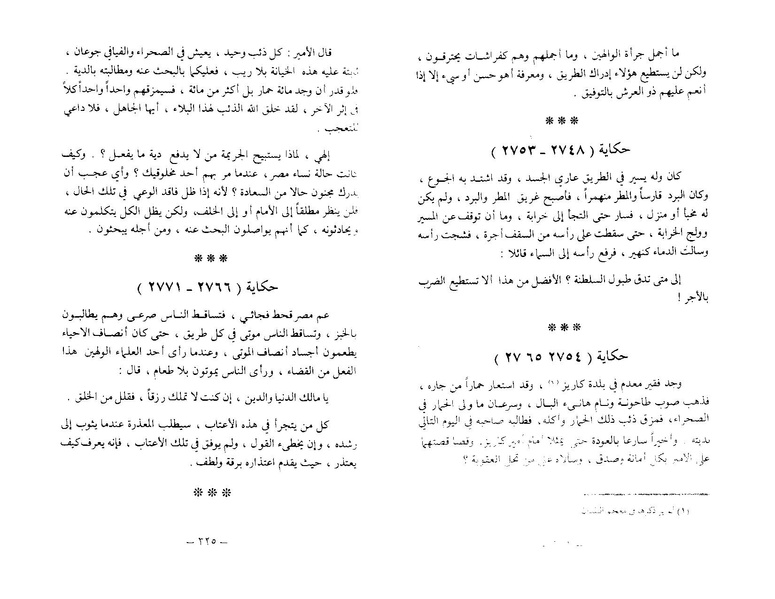 ما أجمل جرأة الوالهين ، وما أجملهم وهم كفراشات يحترقون ،
ولكن لن يستطيع هؤلاء إدراك الطريق ، ومعرفة أهو حسن أو سيىء إلا إذا
أنعم عليهم ذو العرش بالتوفيق .
***
حكاية ( ٢٧٤٨ - ٢٧٥٣ )
كان وله يسير في الطريق عاري الجسد ، وقد اشتد به الجوع ،
وكان البرد قارساً والمطر منهمراً ، فأصبح غريق المطر والبرد ، ولم يكن
له مخبأ أو منزل ، فسار حتى التجأ إلى خرابة ، وما أن توقف عن المسير
وولج الخرابة ، حتى سقطت على رأسه من السقف آجرة ، فشجت رأسه
وسالت الدماء كنهير ، فرفع رأسه إلى السماء قائلا :
إلى متى تدق طبول السلطنة ؟ الأفضل من هذا ألا تستطيع الضرب
بالآجر !
***
حكاية ( ٢٧٥٤ ٢٧٦٥ )
وجد فقير معدم في بلدة كاريز (١) ، وقد استعار حماراً من جاره ،
فذهب صوب طاحونة ونام هانىء البال ، وسرعان ما ولى الحمار في
الصحراء ، فمزق ذئب ذلك الحمار وأكله . فطالبه صاحبه في اليوم التالي
بديته . وأخيراً سارعا بالعودة حتى يمثلا أمام أمير كاريز . وقصا قصتهما
على الأمير بكل أمانة وصدق ، وسألاه على من تحل العقوبة ؟
(١) لم يرد ذكرها في معجم البلدان
قال الأمير : كل ذئب وحيد ، يعيش في الصحراء والفيافي جوعان ،
ثبتت عليه هذه الخيانة بلا ريب ، فعليكما بالبحث عنه ومطالبته بالدية .
فلو قدر أن وجد مائة حمار بل أكثر من مائة ، فسيمزقهم واحداً واحداً كلاً
في إثر الآخر ، لقد خلق الله الذئب لهذا البلاء ، أيها الجاهل ، فلا داعي
للتعجب .
إلهي ، لماذا يستبيح الجريمة من لا يدفع دية ما يفعل ؟ . وكيف
كانت حالة نساء مصر ، عندما مر بهم أحد مخلوقيك ؟ وأي عجب أن
يدرك مجنون حالا من السعادة ؟ لأنه إذا ظل فاقد الوعي في تلك الحال ،
فلن ينظر مطلقاً إلى الأمام أو إلى الخلف ، ولكن يظل الكل يتكلمون عنه
ويحادثونه ، كما أنهم يواصلون البحث عنه ، ومن أجله يبحثون .
***
حكاية ( ٢٧٦٦ - ٢٧٧١ )
عم مصر قحط فجائي ، فتساقط الناس صرعى وهم يطالبون
بالخبز ، وتساقط الناس موتى في كل طريق ، حتى كان أنصاف الاحياء
يطعمون أجساد أنصاف الموتى ، وعندما رأى أحد العلماء الولهين هذا
الفعل من القضاء ، ورأى الناس يموتون بلا طعام ، قال :
يا مالك الدنيا والدين ، إن كنت لا تملك رزقاً ، فقلل من الخلق .
كل من يتجرأ في هذه الأعتاب ، سيطلب المعذرة عندما يثوب إلى
رشده ، وإن يخطىء القول ، ولم يوفق في تلك الأعتاب ، فإنه يعرف كيف
يعتذر ، حيث يقدم اعتذاره برقة ولطف .
***
- ٢٢٥ -